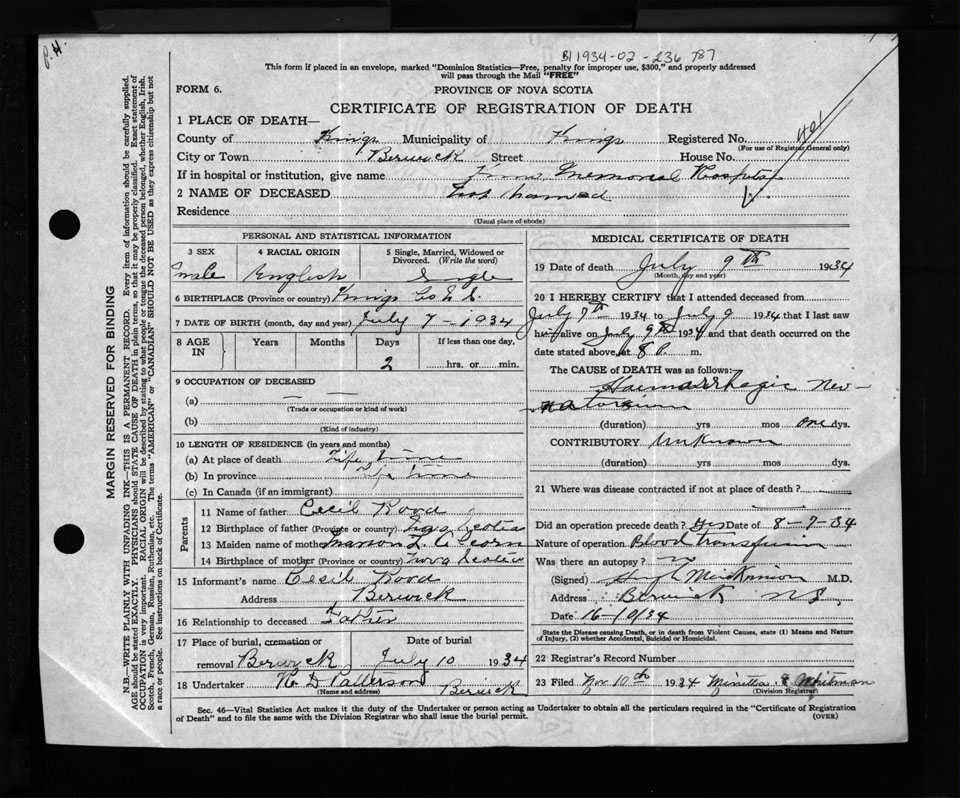 P.H.
B1934-02-236 787
This form if placed in an envelope, marked "Dominion Statistics—Free, penalty for improper use, $300," and properly addressed
will pass through the Mail "FREE"
FORM 6.
PROVINCE OF NOVA SCOTIA
CERTIFICATE OF REGISTRATION OF DEATH
1 PLACE OF DEATH—
County of Kings Municipality of Kings Registered No.
(For use of Registrar General only)
City or Town Berwick Street House No.
If in hospital or institution, give name Memorial Hospital
2 NAME OF DECEASED Not named
Residence
(Usual place of abode)
PERSONAL AND STATISTICAL INFORMATION
3 SEX 4 RACIAL ORIGIN 5 Single, Married, Widowed or Divorced. (Write the word)
male English Single
6 BIRTHPLACE (Province or country) Kings Co N.S.
7 DATE OF BIRTH (month, day and year) July 7 - 1934
8 AGE IN Years Months Days If less than one day,
2 hrs. or min.
9 OCCUPATION OF DECEASED
(a) — —
(Trade or occupation or kind of work)
(b)
(Kind of industry)
10 LENGTH OF RESIDENCE (in years and months)
(a) At place of death Life time
(b) In province Life time
(c) In Canada (if an immigrant)
Parents
11 Name of father Cecil Rood
12 Birthplace of father (Province or country) Nova Scotia
13 Maiden name of mother Marion L.
14 Birthplace of mother (Province or country) Nova Scotia
15 Informant's name Cecil Rood
Address Berwick
16 Relationship to deceased Father
17 Place of burial, cremation or removal Berwick Date of burial July 10 1934
18 Undertaker Patterson Berwick
(Name and address)
MEDICAL CERTIFICATE OF DEATH
19 Date of death July 9th 1934
(Month, day and year)
20 I HEREBY CERTIFY that I attended deceased from
July 7th 1934 to July 9 1934 that I last saw
him alive on July 9th 1934 and that death occurred on
date stated above, at 8 P. m.
The CAUSE OF DEATH was as follows:
Haemorrhagic Neo-
natorium
(duration) yrs mos one dys.
CONTRIBUTORY Unknown
(duration) yrs mos dys.
21 Where was disease contracted if not at place of death?
Did an operation precede death? Yes Date of 8-7-34
Nature of operation Blood transfusion
Was there an autopsy? no
(Signed) Hugh M.D.
Address Berwick NS.
Date 16-/34
State the Disease causing Death, or in death from Violent Causes, state (1) Means and Nature of Injury, (2) whether Accidental, Suicidal or Homicidal.
22 Registrar's Record Number
23 Filed Nov 10th 1934 Whitman
(Division Registrar)
Sec. 46—Vital Statistics Act makes it the duty of the Undertaker or person acting as Undertaker to obtain all the particulars required in the "Certificate of Registration
of Death" and to file the same with the Division Registrar who shall issue the burial permit.
(OVER)
MARGIN RESERVED FOR BINDING
N.B.—WRITE PLAINLY WITH UNFADING INK—THIS IS A PERMANENT RECORD. Every item of information should be carefully supplied.
AGE should be stated EXACTLY. PHYSICIANS should STATE CAUSE OF DEATH in plain terms, so that it may be properly classified. Exact statement of
OCCUPATION is very important. RACIAL ORIGIN will be described by stating to what people or tongue the deceased person belonged, whether English, Irish,
Scotch, French, German, Russian, Ruthenian, etc. The terms "AMERICAN" or "CANADIAN" SHOULD NOT BE USED as they express citizenship but not
a race or people. See instructions on back of Certificate.